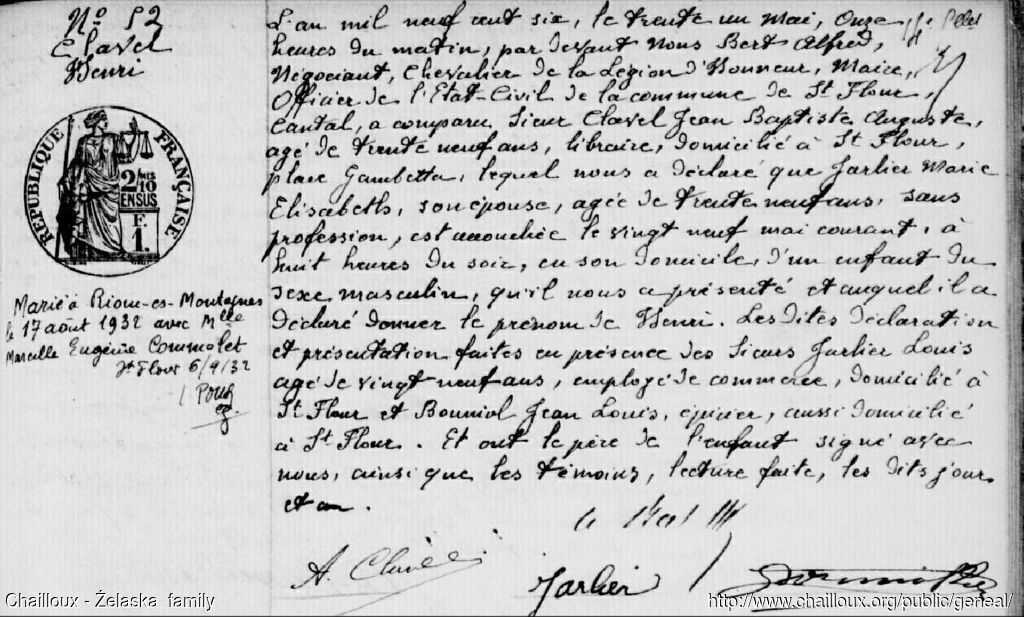 No 52
Clavel
Henri
RÉPUBLIQUE FRANÇAISE
2/10
EN SUS
F.
1.
Marié à Riom-es-Montagnes
le 17 août 1932 avec Mlle
Marcelle Eugénie Commolet
St Flour 6/9/32
L'an mil neuf cent six, le trente un Mai, Onze
heures du matin, par devant Nous Bert Alfred,
Négociant, Chevalier de la Légion d'Honneur, Maire,
Officier de l'Etat-Civil de la commune de St Flour,
Cantal, a comparu Sieur Clavel Jean Baptiste Auguste,
agé de trente neuf ans, libraire, domicilié à St Flour,
place Gambetta, lequel nous a déclaré que Jarlier Marie
Elisabeth, son épouse, agée de trente neuf ans, sans
profession, est accouchée le vingt neuf mai courant, à
huit heures du soir, en son domicile, d'un enfant du
sexe masculin, qu'il nous a présenté et auquel il a
déclaré donner le prénom de Henri. Les dites déclaration
et présentation faites en présence des Sieurs Jarlier Louis
agé de vingt neuf ans, employé de commerce, domicilié à
St Flour et Bonniol Jean Louis, épicier, aussi domicilié
à St Flour. Et ont le père de l'enfant signé avec
nous, ainsi que les témoins, lecture faite, les dits jour
et an.
A. Clavel
Jarlier
Chailloux - Żelaska family
http://www.chailloux.org/public/geneal/